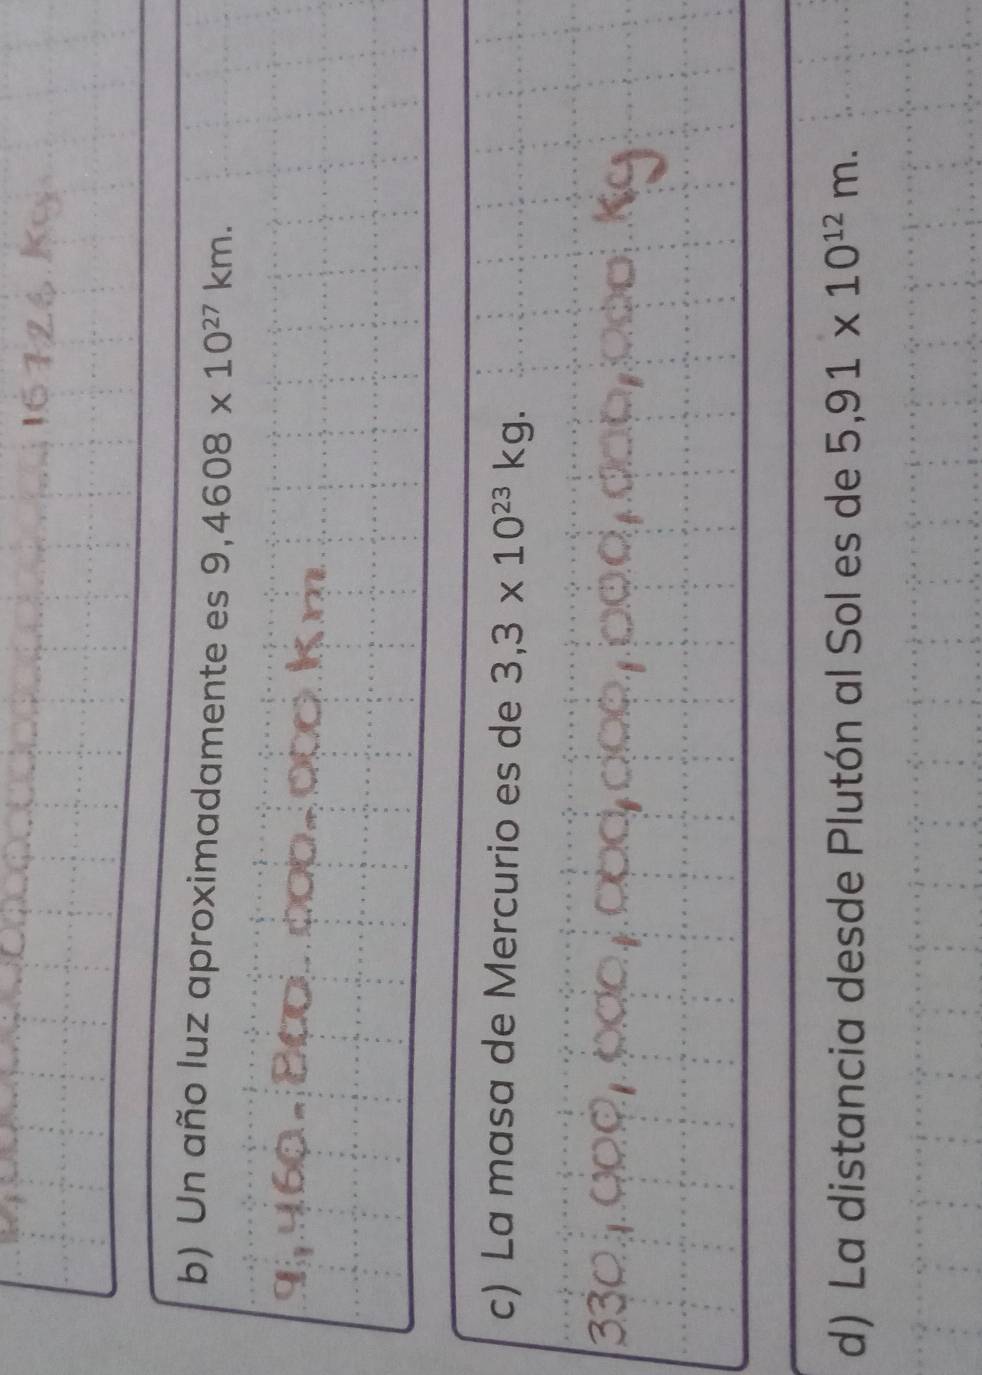 16726 Kg
b) Un año luz aproximadamente es 9,4608 x 10²⁷ km.
9,460.800.000.000 Km
c) La masa de Mercurio es de 3,3 x 10²³ kg.
330,000,000,000,000,000,000,000 kg
d) La distancia desde Plutón al Sol es de 5,91 x 10¹² m.